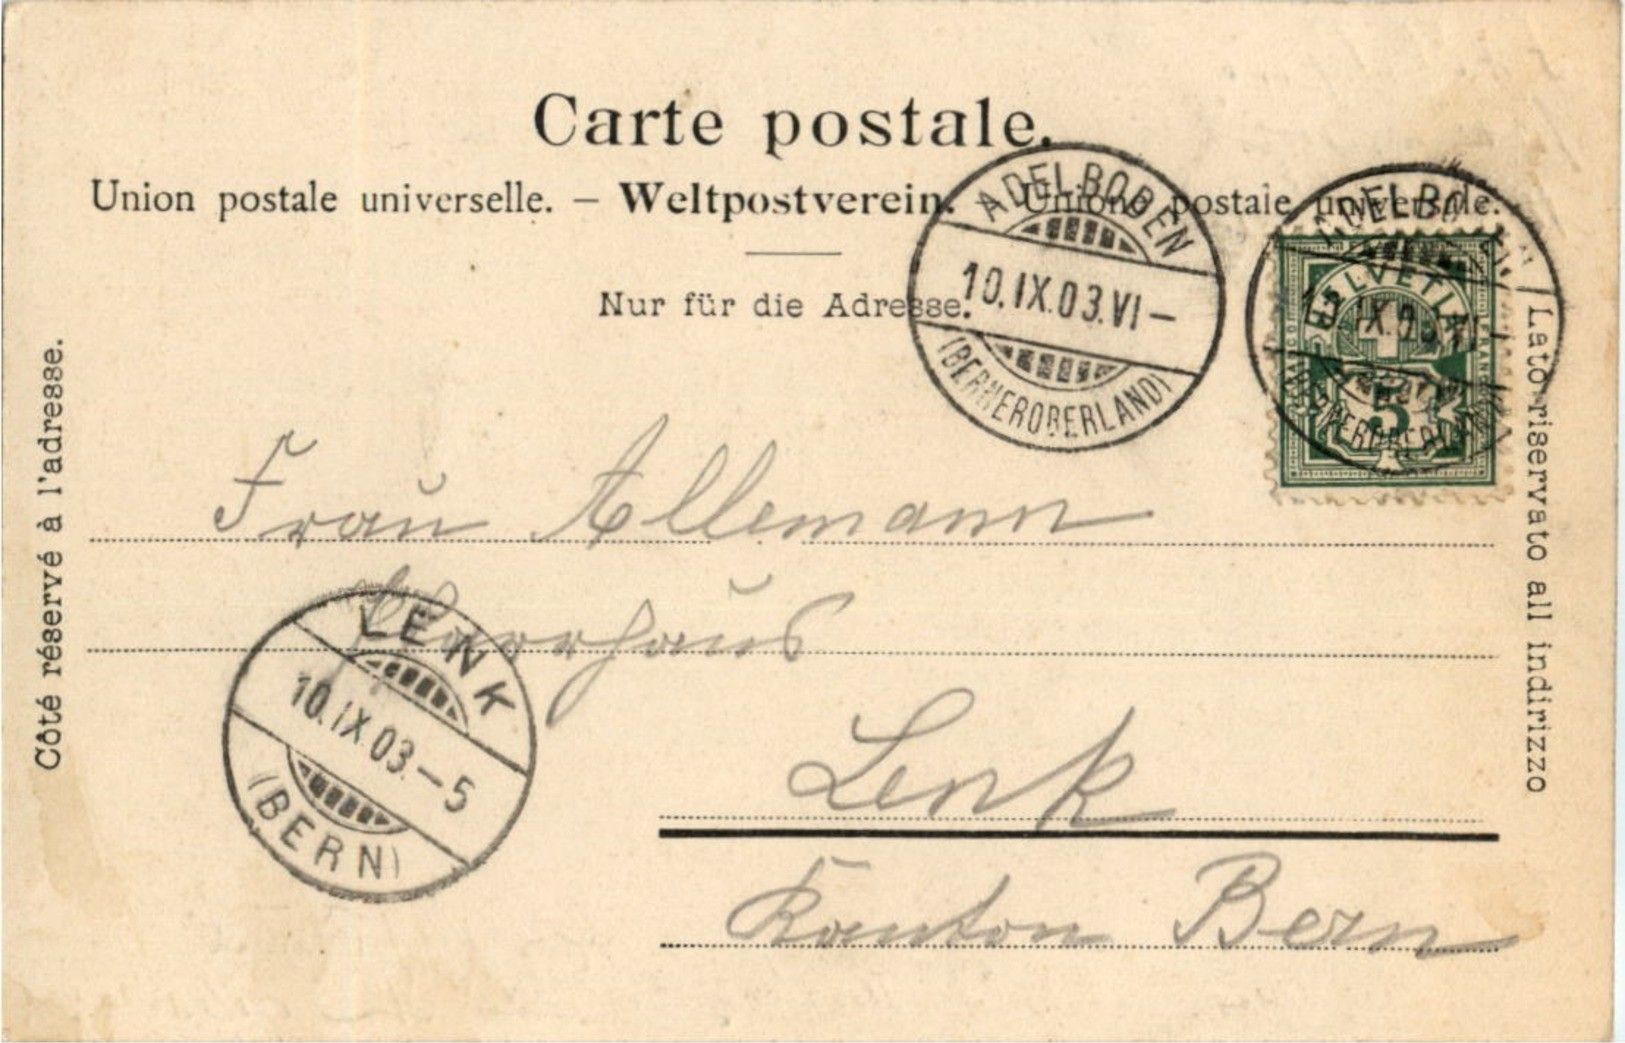 Carte postale.
Union postale universelle. — Weltpostverein. — Unione postale universale.
Nur für die Adresse.
Côté réservé à l'adresse.
Lato riservato all indirizzo
ADELBODEN
10.IX.03.VI—
(BERNEROBERLAND)
ADELBODEN
10.IX.03.VI
(BERNEROBERLAND)
HELVETIA
5
Frau Allemann
Pfarrhaus
LENK
10.IX.03.—5
(BERN)
Lenk
Kanton Bern